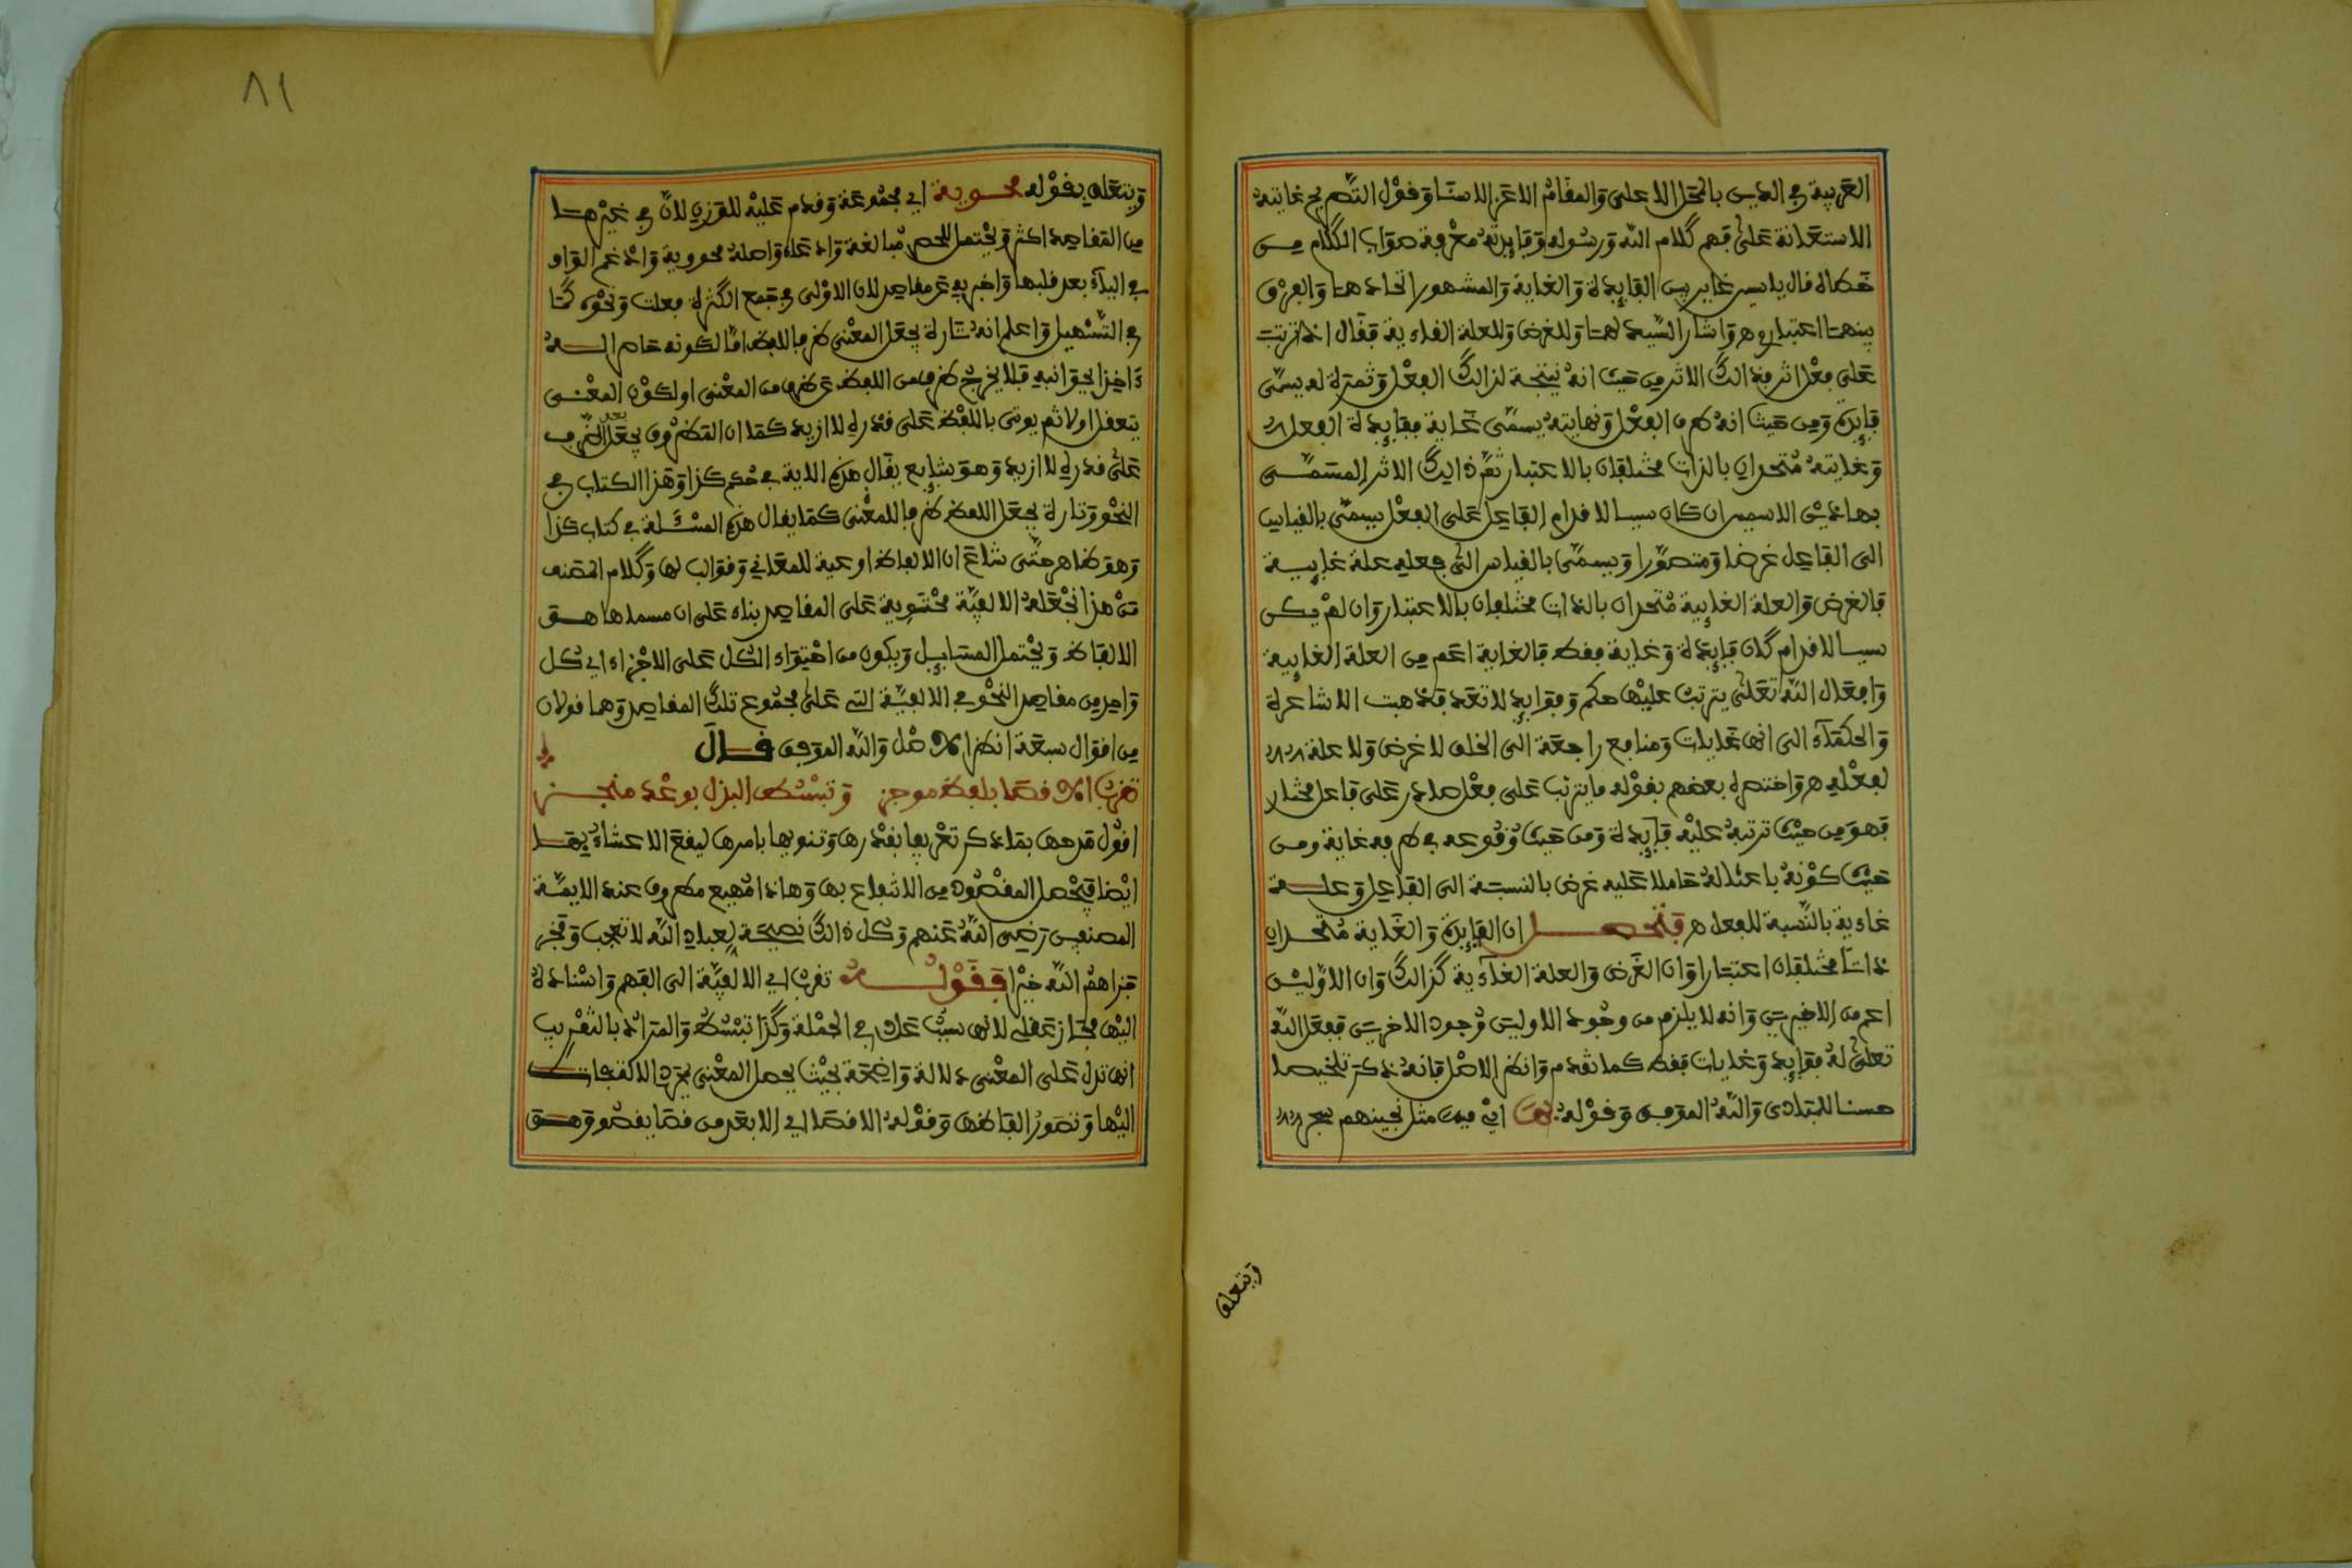 العربية في الدين بالمحل الاعلى والمقام الاعز الاسنا وقول الناظم غايته
الاستعانة على فهم كلام الله ورسوله وفايدته معرفة صواب الكلام من
خطاه قال يا سين غاير بين الفايدة والغاية والمشهور اتحادهما والفرق
بينهما اعتباري هر واشار السيد لهما وللغرض وللعلة الغاءية فقال اذا ترتب
على فعل اثر فذالك الاثر من حيث انه نتيجة لذالك الفعل وثمرة له يسمى
فايدة ومن حيث انه طرف الفعل ونهايته يسمى غاية ففايدة الفعل
وغايته متحدان بالذات مختلفان بالاعتبار ثم ذالك الاثر المسمى
بهاذين الاسمين ان كان سببا لاقدام الفاعل على الفعل يسمى بالقياس
الى الفاعل غرضا ومقصودا ويسمى بالقياس الى فعله علة غايية
فالغرض والعلة الغايية متحدان بالذات مختلفان بالاعتبار وان لم يكن
سببا للاقدام كان فايدة وغاية فقط فالغاية اعم من العلة الغايية
وافعال الله تعلى يترتب عليها حكم وفوايد لا تعد فذهبت الاشاعرة
والحكماء الى انها غايات ومنافع راجعة الى الخلق لا غرض ولا علة
لفعله هر واختصره بعضهم بقوله ما يترتب على فعل صادر على فاعل مختار
فهو من حيث ترتبه عليه فايدة ومن حيث وقوعه في طرفه غاية ومن
حيث كونه باعثا له حاملا عليه غرض بالنسبة الى الفاعل وعلة
غاءية بالنسبة للفعل هر فتحصل ان الفايدة والغاية متحدان
ذاتا مختلفان اعتبارا وان الغرض والعلة الغاءية كذالك وان الاولين
اعم من الاخيرين وانه لا يلزم من وجود الاولين وجود الاخرين ففعل الله
تعلى له فوايد وغايات فقط كما تقدم وانظر الاصل فانه ذكر تلخيصا
حسنا للمبتدى والله الموفق وقوله بها اي فيها مثل نجينهم بسحر
ويتعلق
٨١
ويتعلق بقوله محوية اي مجموعة وقدم عليه للوزن لان في غيرها
من المقاصد اكثر ويحتمل للحصر مبالغة وادعاء واصله محووية وادغم الواو
في الياء بعد قلبها واخبر به عن مقاصد لان الاولى في جمع الكثرة فعلت ونحوه كما
في التسهيل واعلم انه تارة يجعل المعنى ظرفا للفظ اما لكونه حاصرا له
ءاخذا بجوانبه فلا يخرج طرف من اللفظ عن طرف من المعنى او لكون المعنى
يتعقل اولا ثم يوتى باللفظ على قدره لا ازيد كما ان المظروف يجعل الظرف
على قدره لا ازيد وهو شايع يقال هذه الاية في حكم كذا وهذا الكتاب في
النحو وتارة يجعل اللفظ ظرفا للمعنى كما يقال هذه المسئلة في كتاب كذا
وهو ظاهر حتى شاع ان الالفاظ اوعية للمعاني وقوالب لها وكلام المصنف
من هذا لجعله الالفية محتوية على المقاصد بناء على ان مسماها هو
الالفاظ ويحتمل المسايل ويكون من احتواء الكل على الاجزاء اي كل
واحد من مقاصد النحو في الالفية التي على مجموع تلك المقاصد وهما قولان
من اقوال سبعة انظر الاصل والله الموفق قال
تقرب الاقصا بلفظ موجز وتبسط البذل بوعد منجز
اقول مدحها بما ذكر تعريفا بقدرها وتنويها بامرها ليقع الاعتناء بها
ايضا فيحصل المقصود من الانتفاع بها وهاذا مهيع مطروق عند الايمة
المصنفين رضي الله عنهم وكل ذالك نصيحة لعباد الله لا تعجب وفخر
جزاهم الله خيرا فقوله تقرب اي الالفية الى الفهم واسناده
اليها مجاز عقلي لانها سبب عادي في الجملة وكذا تبسط والمراد بالتقريب
انها تدل على المعنى دلالة واضحة بحيث يحصل المعنى بمجرد الالتفات
اليها وتصور الفاظها وقوله الاقصا اي الابعد من قصا يقصو وهو